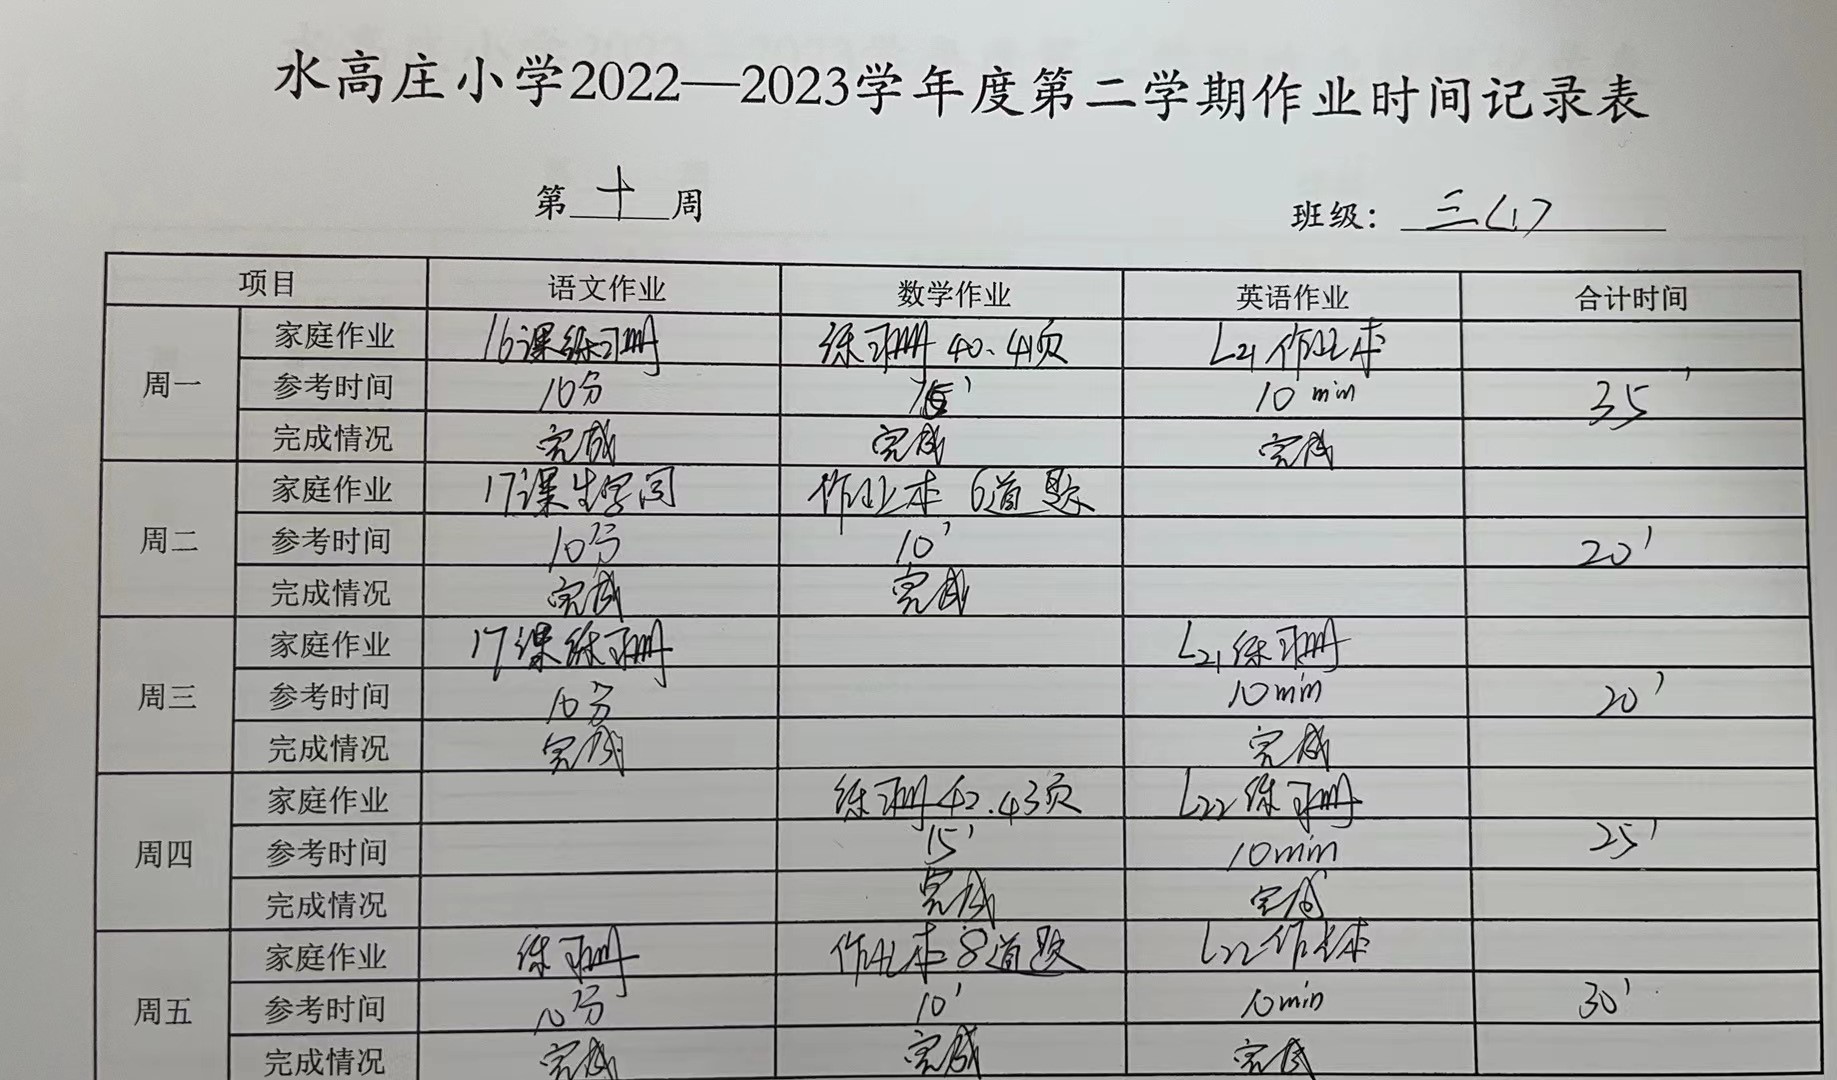 水高庄小学2022—2023学年度第二学期作业时间记录表
第 十 周 班级： 三(1)
项目 语文作业 数学作业 英语作业 合计时间
周一
家庭作业 16课练习册 练习册 40、41页 L21 作业本
参考时间 10分 15' 10 min 35'
完成情况 完成 完成 完成
周二
家庭作业 17课生字词 作业本 6道题
参考时间 10分 10' 20'
完成情况 完成 完成
周三
家庭作业 17课练习册 L21 练习册
参考时间 10分 10min 20'
完成情况 完成 完成
周四
家庭作业 练习册 42.43页 L22 练习册
参考时间 15' 10min 25'
完成情况 完成 完成
周五
家庭作业 练习册 作业本 8道题 L22 作业本
参考时间 10分 10' 10min 30'
完成情况 完成 完成 完成